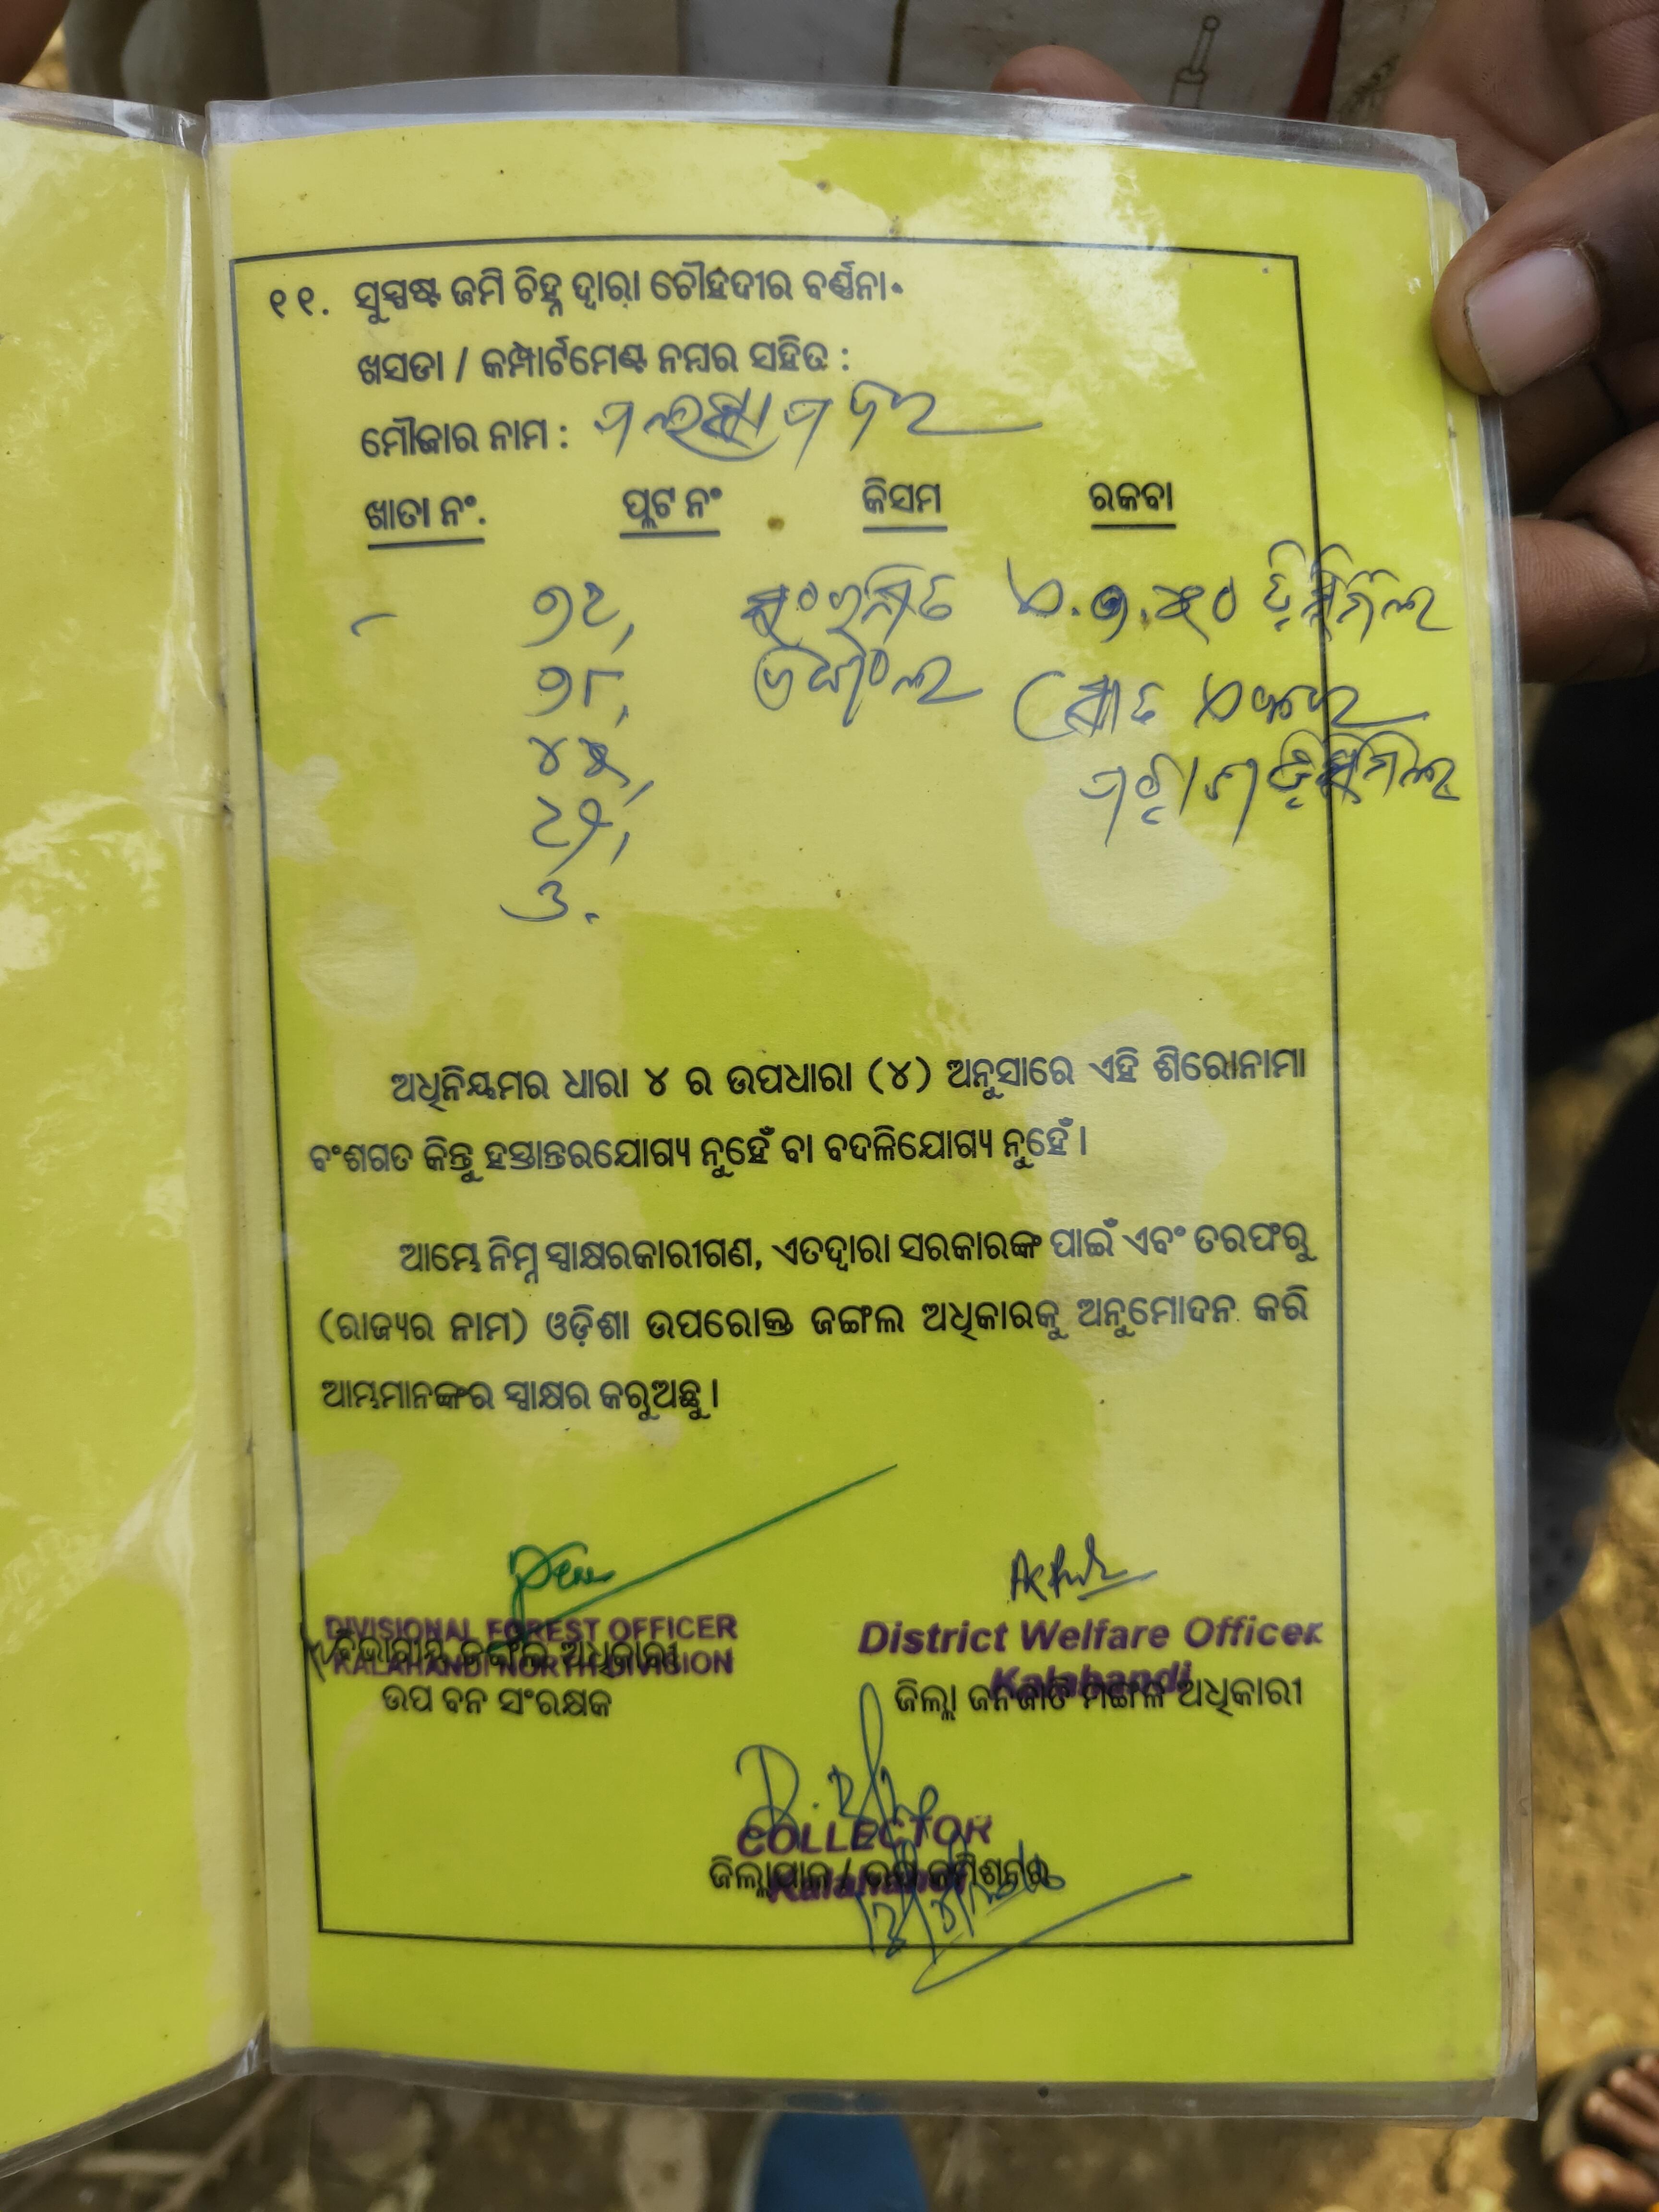 ୧୧. ସୁସ୍ପଷ୍ଟ ଜମି ଚିହ୍ନ ଦ୍ୱାରା ଚୌହଦୀର ବର୍ଣ୍ଣନା.
ଖସଡା / କମ୍ପାର୍ଟମେଣ୍ଟ ନମ୍ବର ସହିତ :
ମୌଜାର ନାମ :
ଖାତା ନଂ. ପ୍ଲଟ ନଂ କିସମ ରକବା
୭୧, ସଂରକ୍ଷିତ ଏ.୭.୫୦ ଡ଼ିସିମିଲ
୭୮, ଜଙ୍ଗଲ (ସାତ ଏକର
୪୫, ପଚାଶ ଡ଼ିସିମିଲ
ଅଧିନିୟମର ଧାରା ୪ ର ଉପଧାରା (୪) ଅନୁସାରେ ଏହି ଶିରୋନାମା
ବଂଶଗତ କିନ୍ତୁ ହସ୍ତାନ୍ତରଯୋଗ୍ୟ ନୁହେଁ ବା ବଦଳିଯୋଗ୍ୟ ନୁହେଁ ।
ଆମ୍ଭେ ନିମ୍ନ ସ୍ୱାକ୍ଷରକାରୀଗଣ, ଏତଦ୍ୱାରା ସରକାରଙ୍କ ପାଇଁ ଏବଂ ତରଫରୁ
(ରାଜ୍ୟର ନାମ) ଓଡ଼ିଶା ଉପରୋକ୍ତ ଜଙ୍ଗଲ ଅଧିକାରକୁ ଅନୁମୋଦନ କରି
ଆମ୍ଭମାନଙ୍କର ସ୍ୱାକ୍ଷର କରୁଅଛୁ ।
DIVISIONAL FOREST OFFICER
ବିଭାଗୀୟ ଜଙ୍ଗଲ ଅଧିକାରୀ
KALAHANDI NORTH DIVISION
ଉପ ବନ ସଂରକ୍ଷକ
District Welfare Officer
Kalahandi
ଜିଲ୍ଲା ଜନଜାତି ମଙ୍ଗଳ ଅଧିକାରୀ
COLLECTOR
ଜିଲ୍ଲାପାଳ / ଉପ କମିଶନର
Kalahandi